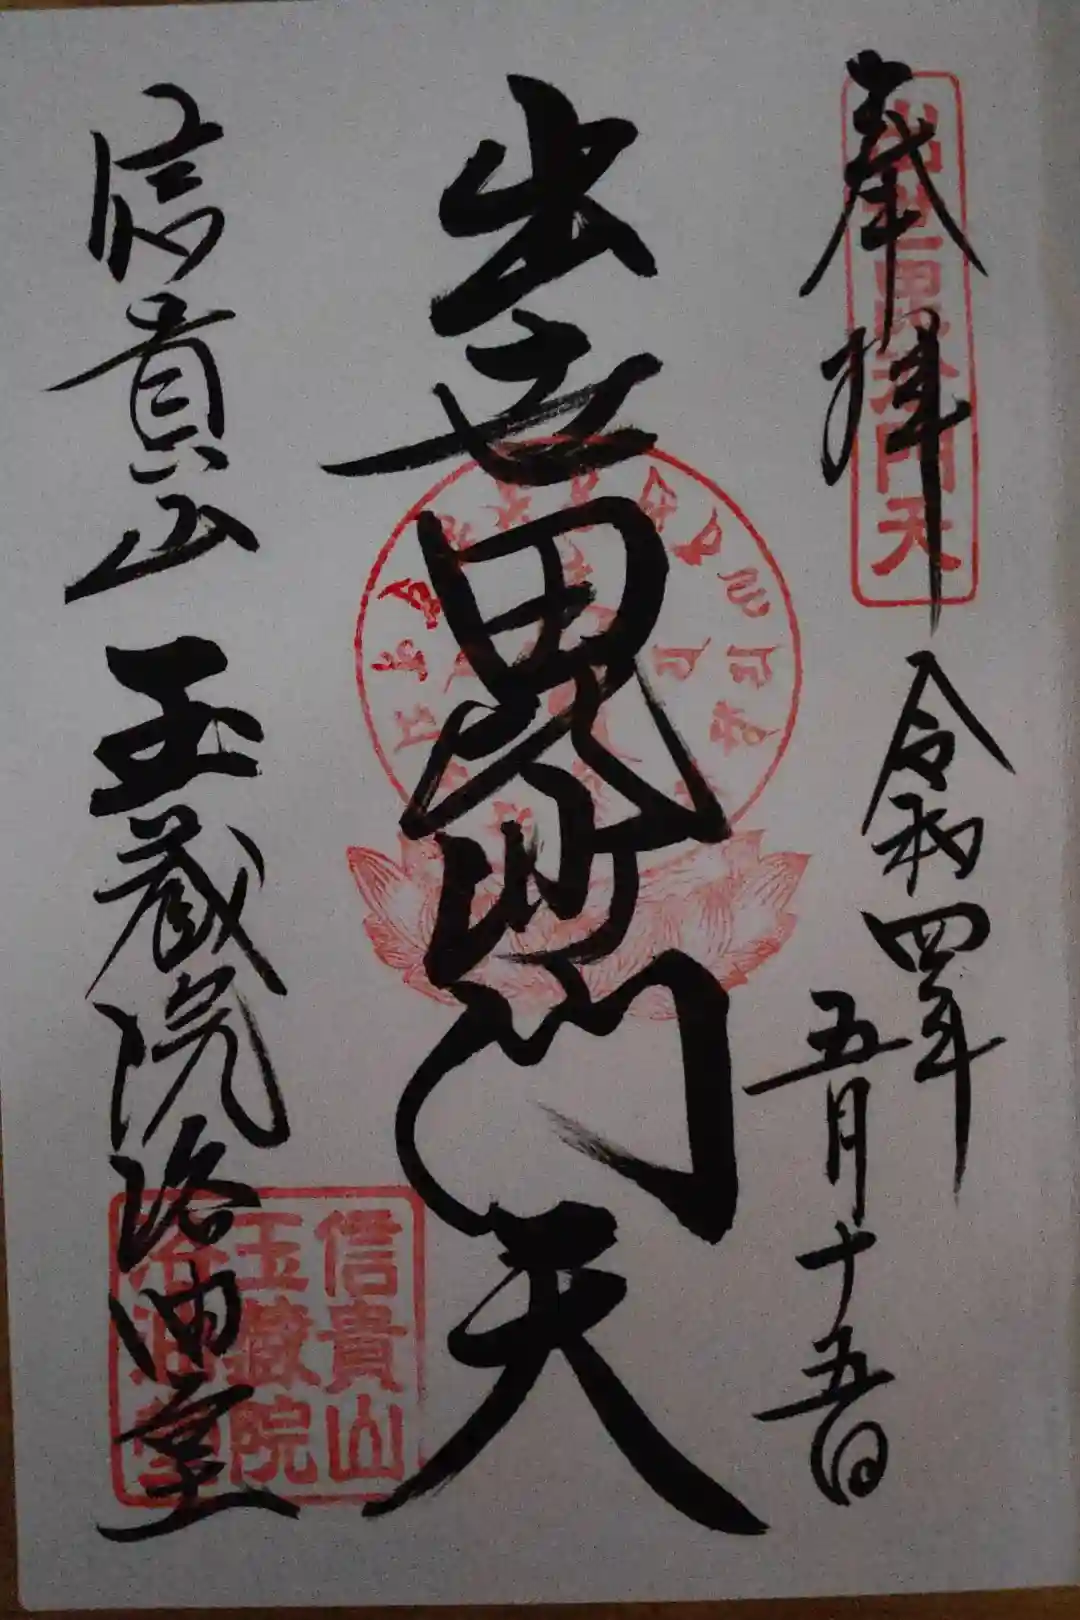 奉拝
令和四年
五月十五日
出世毘沙門天
信貴山 玉蔵院浴油堂
出世毘沙門天
信貴山
玉蔵院
浴油堂